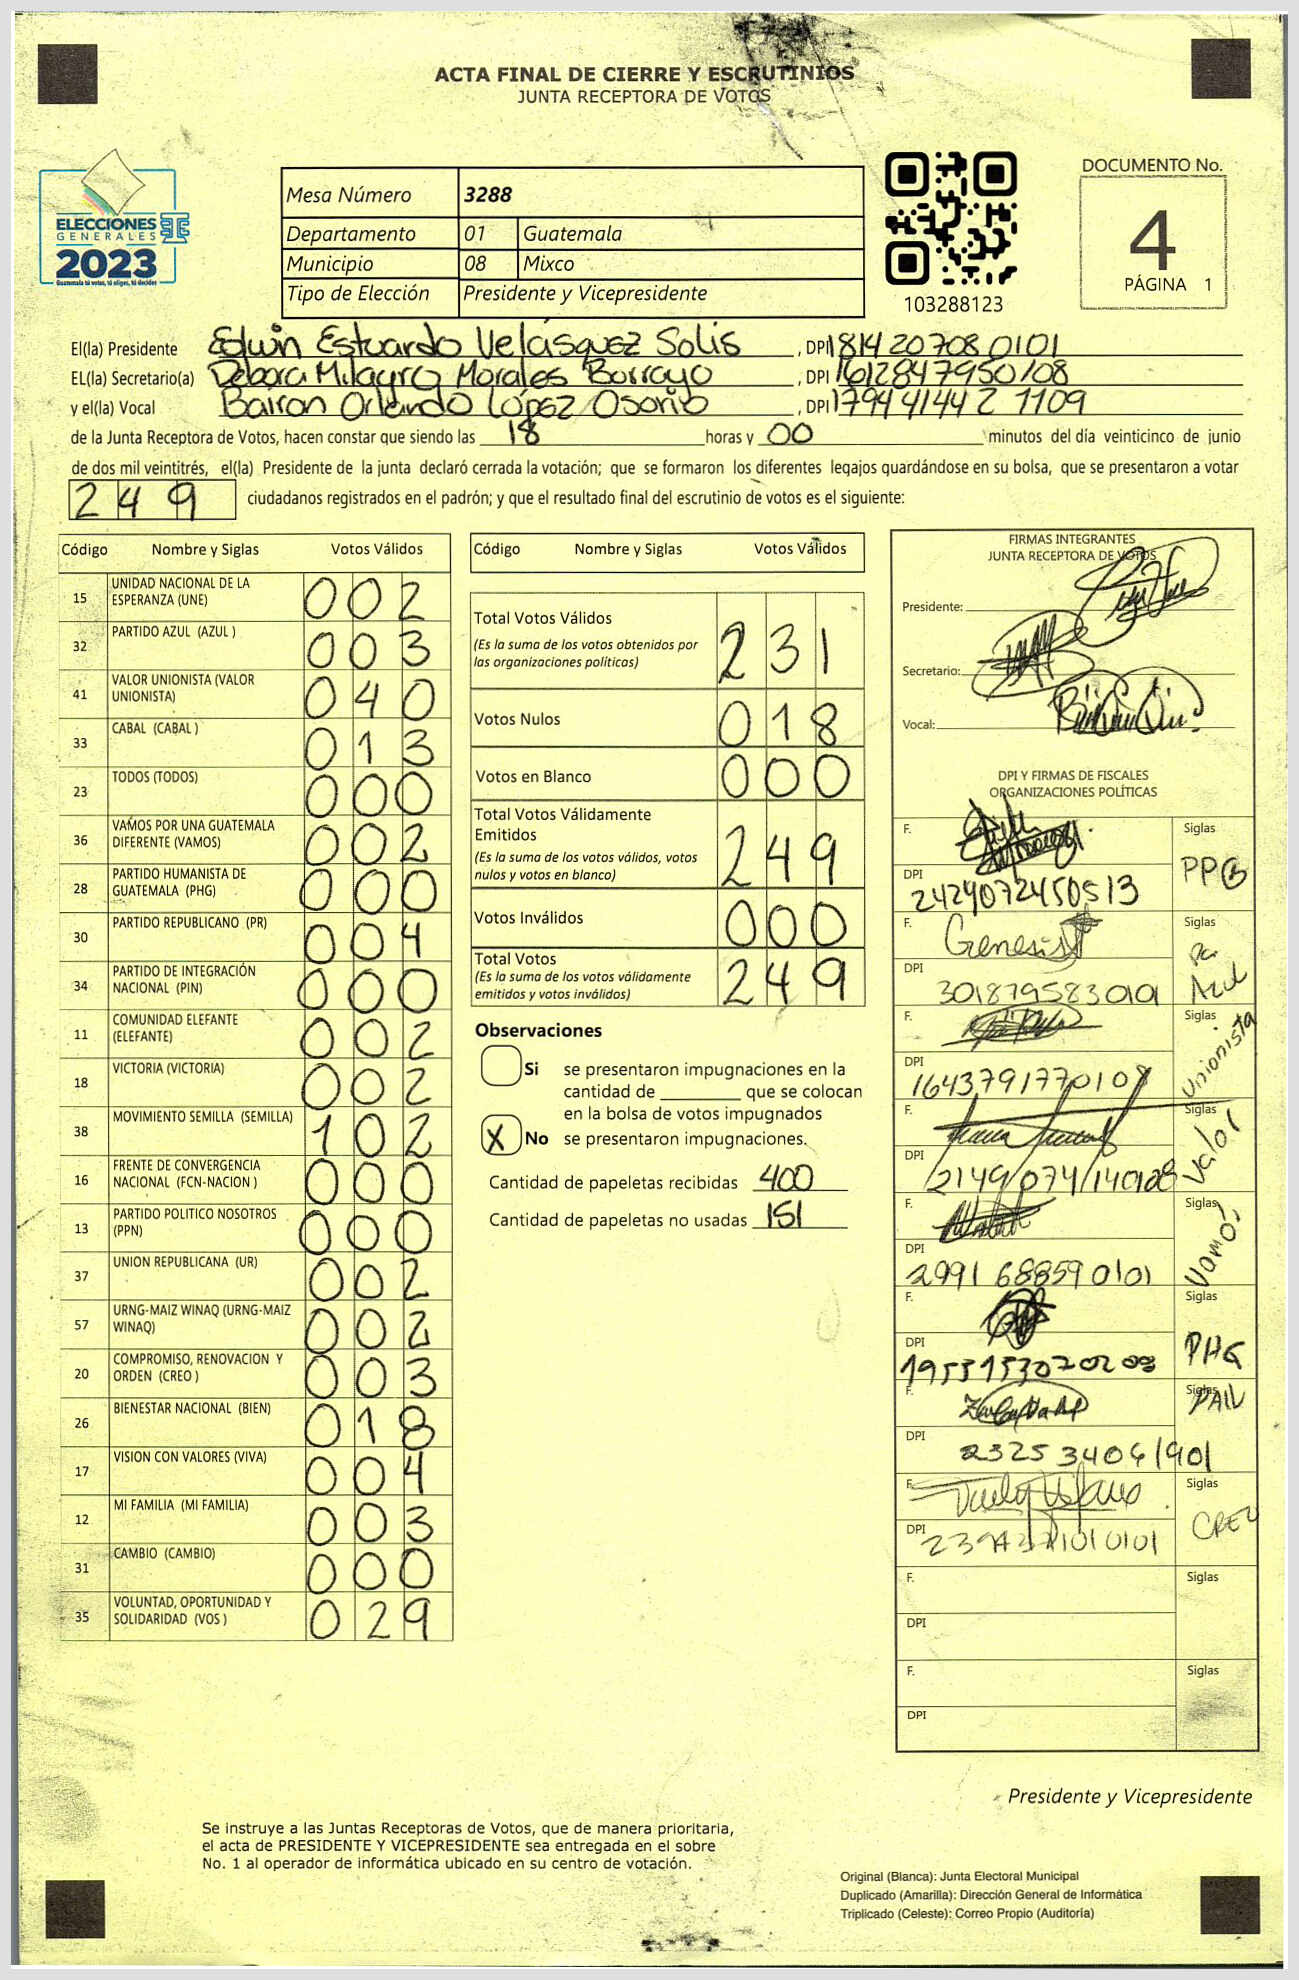 ACTA FINAL DE CIERRE Y ESCRUTINIOS
JUNTA RECEPTORA DE VOTOS
ELECCIONES
GENERALES
2023
Guatemala tú votas, tú eliges, tú decides
Mesa Número 3288
Departamento 01 Guatemala
Municipio 08 Mixco
Tipo de Elección Presidente y Vicepresidente
103288123
DOCUMENTO No.
4
PÁGINA 1
El(la) Presidente Edwin Estuardo Velásquez Solis , DPI 1814207080101
EL(la) Secretario(a) Debora Milagro Morales Borrayo , DPI 1612847950108
y el(la) Vocal Bairon Orlando López Osorio , DPI 1794414421109
de la Junta Receptora de Votos, hacen constar que siendo las 18 horas y 00 minutos del día veinticinco de junio
de dos mil veintitrés, el(la) Presidente de la junta declaró cerrada la votación; que se formaron los diferentes legajos guardándose en su bolsa, que se presentaron a votar
249 ciudadanos registrados en el padrón; y que el resultado final del escrutinio de votos es el siguiente:
Código Nombre y Siglas Votos Válidos
15 UNIDAD NACIONAL DE LA ESPERANZA (UNE) 002
32 PARTIDO AZUL (AZUL ) 003
41 VALOR UNIONISTA (VALOR UNIONISTA) 040
33 CABAL (CABAL ) 013
23 TODOS (TODOS) 000
36 VAMOS POR UNA GUATEMALA DIFERENTE (VAMOS) 002
28 PARTIDO HUMANISTA DE GUATEMALA (PHG) 000
30 PARTIDO REPUBLICANO (PR) 004
34 PARTIDO DE INTEGRACIÓN NACIONAL (PIN) 000
11 COMUNIDAD ELEFANTE (ELEFANTE) 002
18 VICTORIA (VICTORIA) 002
38 MOVIMIENTO SEMILLA (SEMILLA) 102
16 FRENTE DE CONVERGENCIA NACIONAL (FCN-NACION ) 000
13 PARTIDO POLITICO NOSOTROS (PPN) 000
37 UNION REPUBLICANA (UR) 002
57 URNG-MAIZ WINAQ (URNG-MAIZ WINAQ) 002
20 COMPROMISO, RENOVACION Y ORDEN (CREO ) 003
26 BIENESTAR NACIONAL (BIEN) 018
17 VISION CON VALORES (VIVA) 004
12 MI FAMILIA (MI FAMILIA) 003
31 CAMBIO (CAMBIO) 000
35 VOLUNTAD, OPORTUNIDAD Y SOLIDARIDAD (VOS ) 029
Código Nombre y Siglas Votos Válidos
Total Votos Válidos 231
(Es la suma de los votos obtenidos por
las organizaciones políticas)
Votos Nulos 018
Votos en Blanco 000
Total Votos Válidamente
Emitidos 249
(Es la suma de los votos válidos, votos
nulos y votos en blanco)
Votos Inválidos 000
Total Votos 249
(Es la suma de los votos válidamente
emitidos y votos inválidos)
Observaciones
Si se presentaron impugnaciones en la
cantidad de ________ que se colocan
en la bolsa de votos impugnados
X No se presentaron impugnaciones.
Cantidad de papeletas recibidas 400
Cantidad de papeletas no usadas 151
FIRMAS INTEGRANTES
JUNTA RECEPTORA DE VOTOS
Presidente:
Secretario:
Vocal:
DPI Y FIRMAS DE FISCALES
ORGANIZACIONES POLÍTICAS
F. Siglas
DPI 2429072450513
F. Genesis Siglas Azul
DPI 3018795830101
F. Siglas Unionista
DPI 1643791770108
F. Siglas Valor
DPI 2149/074/140128
F. Siglas Vamos
DPI 2991 688590101
F. Siglas PHG
DPI
F. Siglas
DPI 232534061901
F. Siglas CREO
DPI
F. Siglas
DPI
F. Siglas
DPI
Presidente y Vicepresidente
Se instruye a las Juntas Receptoras de Votos, que de manera prioritaria,
el acta de PRESIDENTE Y VICEPRESIDENTE sea entregada en el sobre
No. 1 al operador de informática ubicado en su centro de votación.
Original (Blanca): Junta Electoral Municipal
Duplicado (Amarilla): Dirección General de Informática
Triplicado (Celeste): Correo Propio (Auditoría)